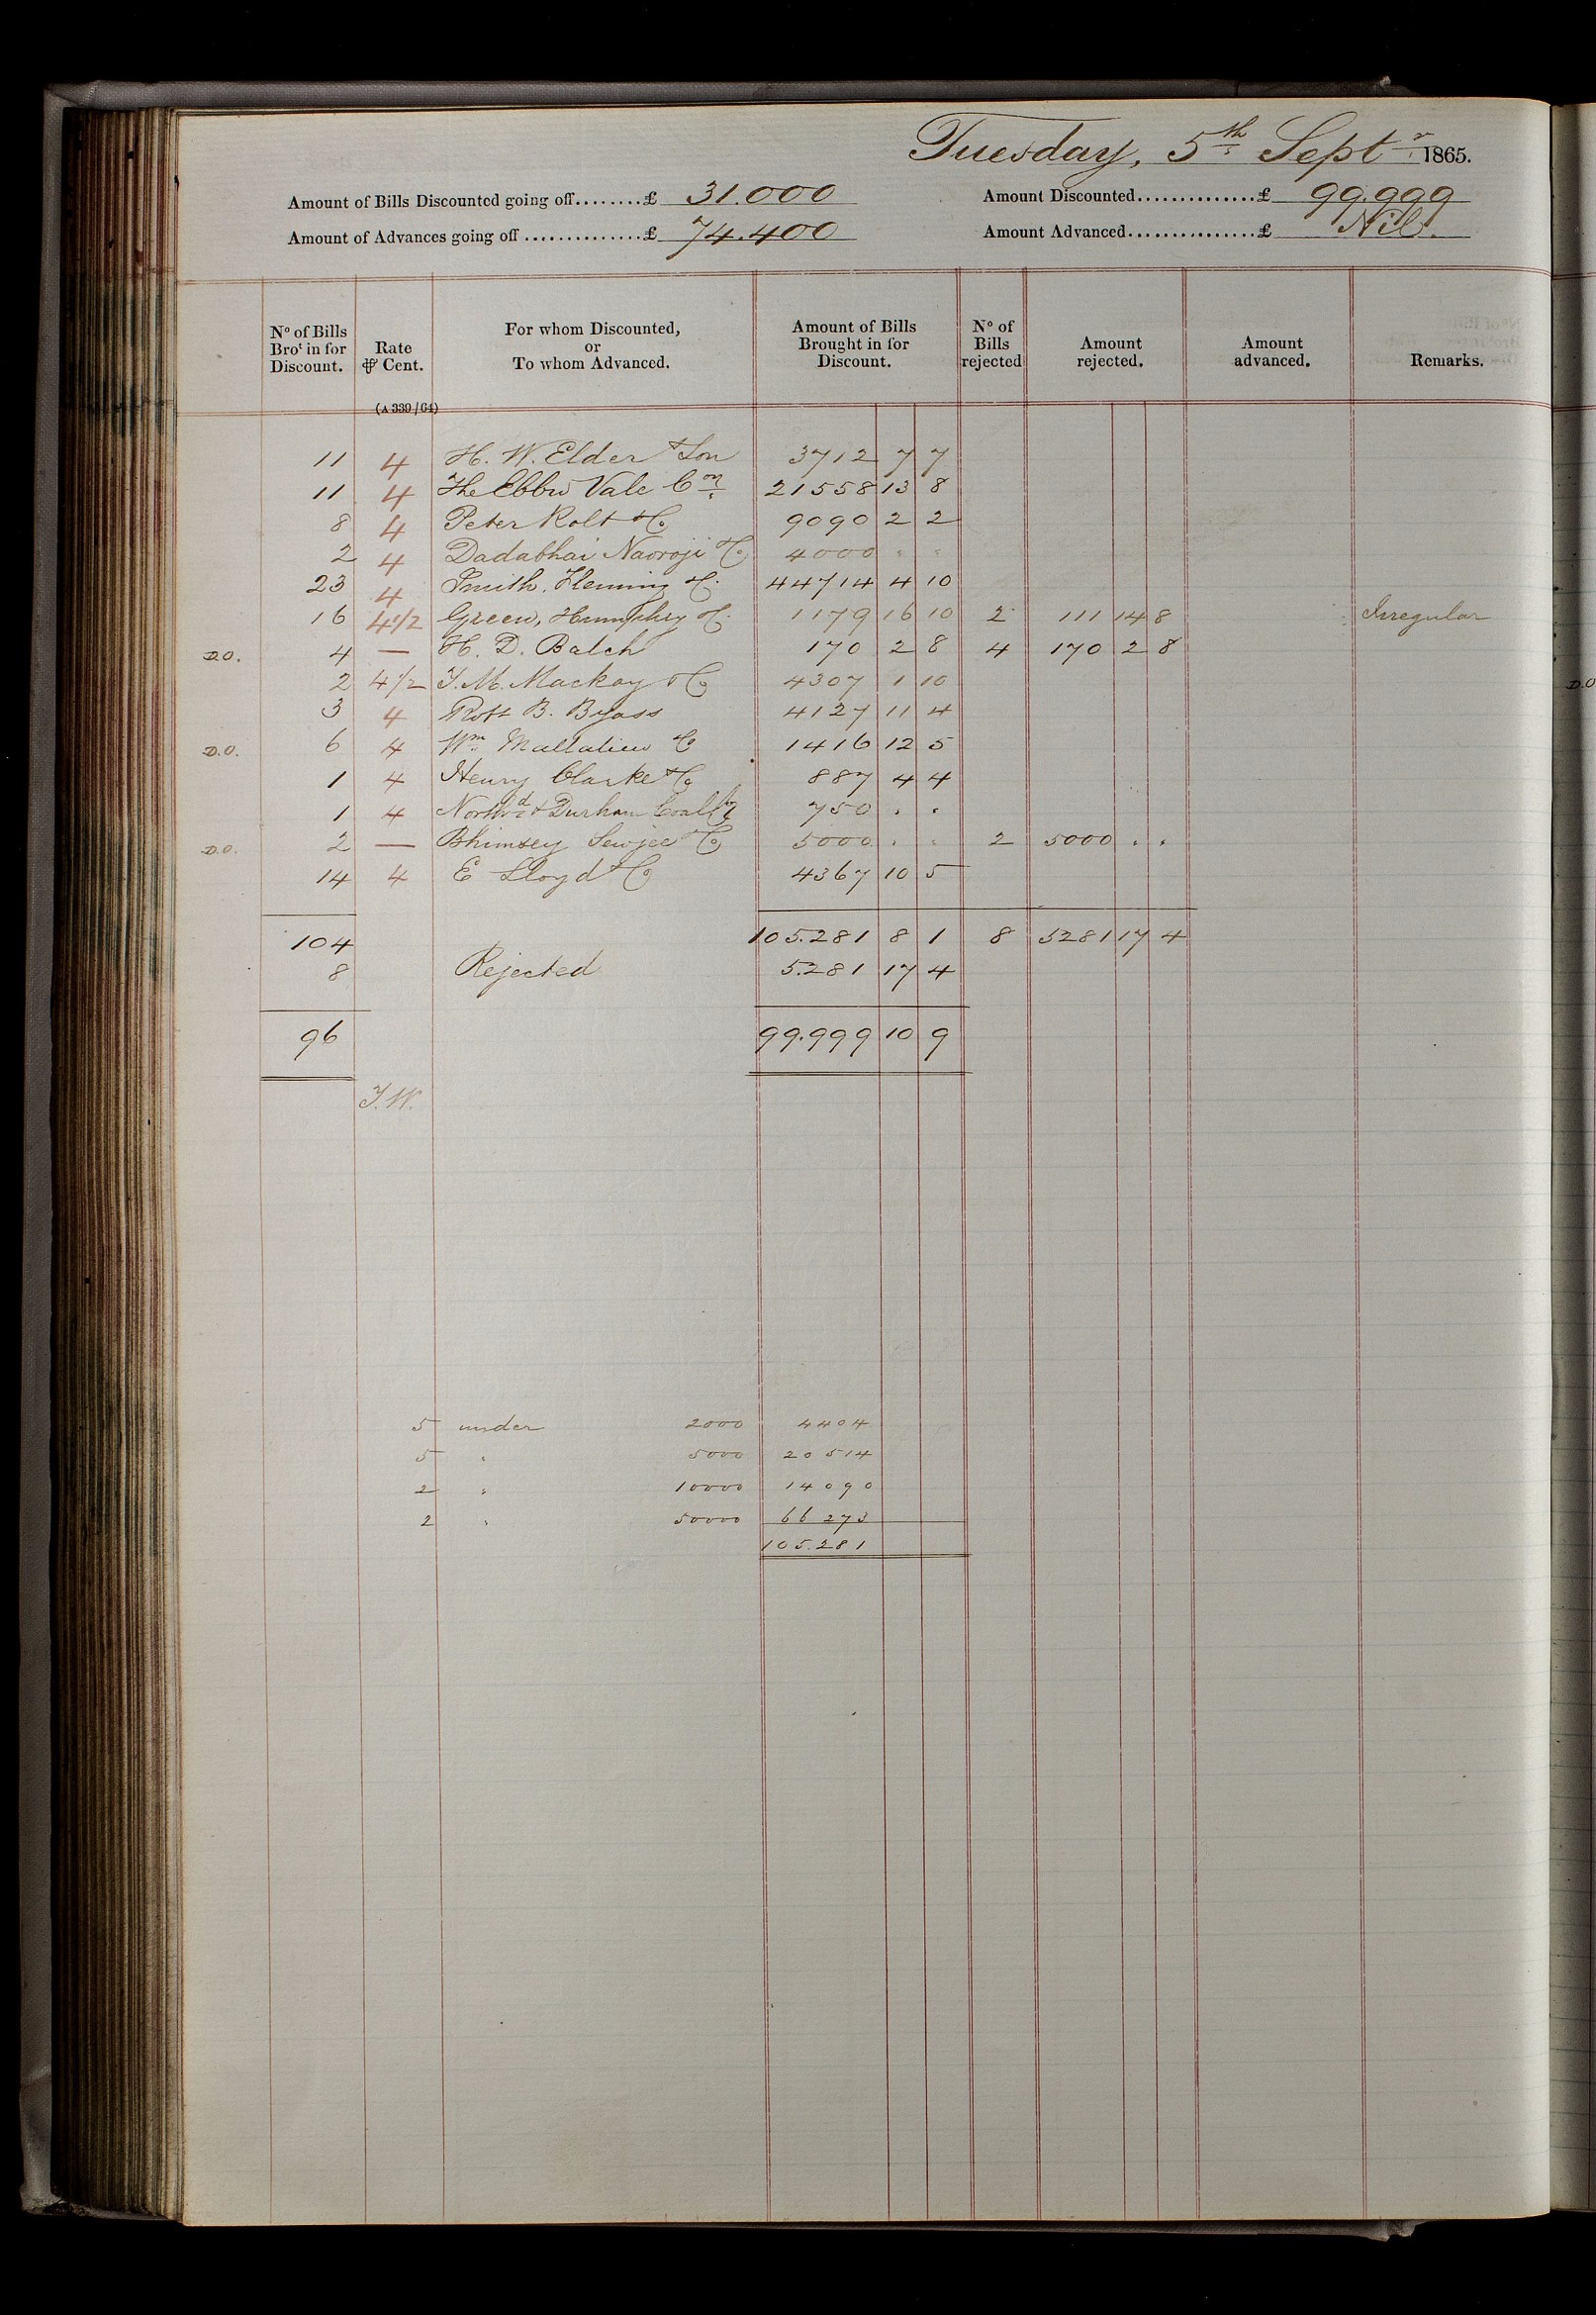 Tuesday, 5th Septr 1865.
Amount of Bills Discounted going off........£ 31.000 Amount Discounted..............£ 99.999
Amount of Advances going off..............£ 74.400 Amount Advanced...............£ Nil.
No of Bills Brot in for Discount. Rate ⅌ Cent. For whom Discounted, or To whom Advanced. Amount of Bills Brought in for Discount. No of Bills rejected Amount rejected. Amount advanced. Remarks.
(A 339/64)
11 4 H. W. Elder & Son 3712 7 7
11 4 The Ebbw Vale Con 21558 13 8
8 4 Peter Rolt & Co 9090 2 2
2 4 Dadabhai Naoroji & Co 4000 " "
23 4 Smith, Fleming & Co 44714 4 10
16 4 1/2 Green, Humphrey & Co 1179 16 10 2 111 14 8 Irregular
D.O. 4 — H. D. Balch 170 2 8 4 170 2 8
2 4 1/2 J. M. Mackay & Co 4307 1 10
3 4 Robt B. Byass 4127 11 4
D.O. 6 4 Wm Mallalieu & Co 1416 12 5
1 4 Henry Clarke & Co 887 4 4
1 4 Northd & Durham Coal Co 750 . .
D.O. 2 — Bhimsey Sewjee & Co 5000 . . 2 5000 . .
14 4 E Lloyd & Co 4367 10 5
104 105.281 8 1 8 5281 17 4
8 Rejected 5.281 17 4
96 99.999 10 9
J.W.
5 under 2000 4404
5 " 5000 20514
2 " 10000 14090
2 " 50000 66273
105.281
D.O